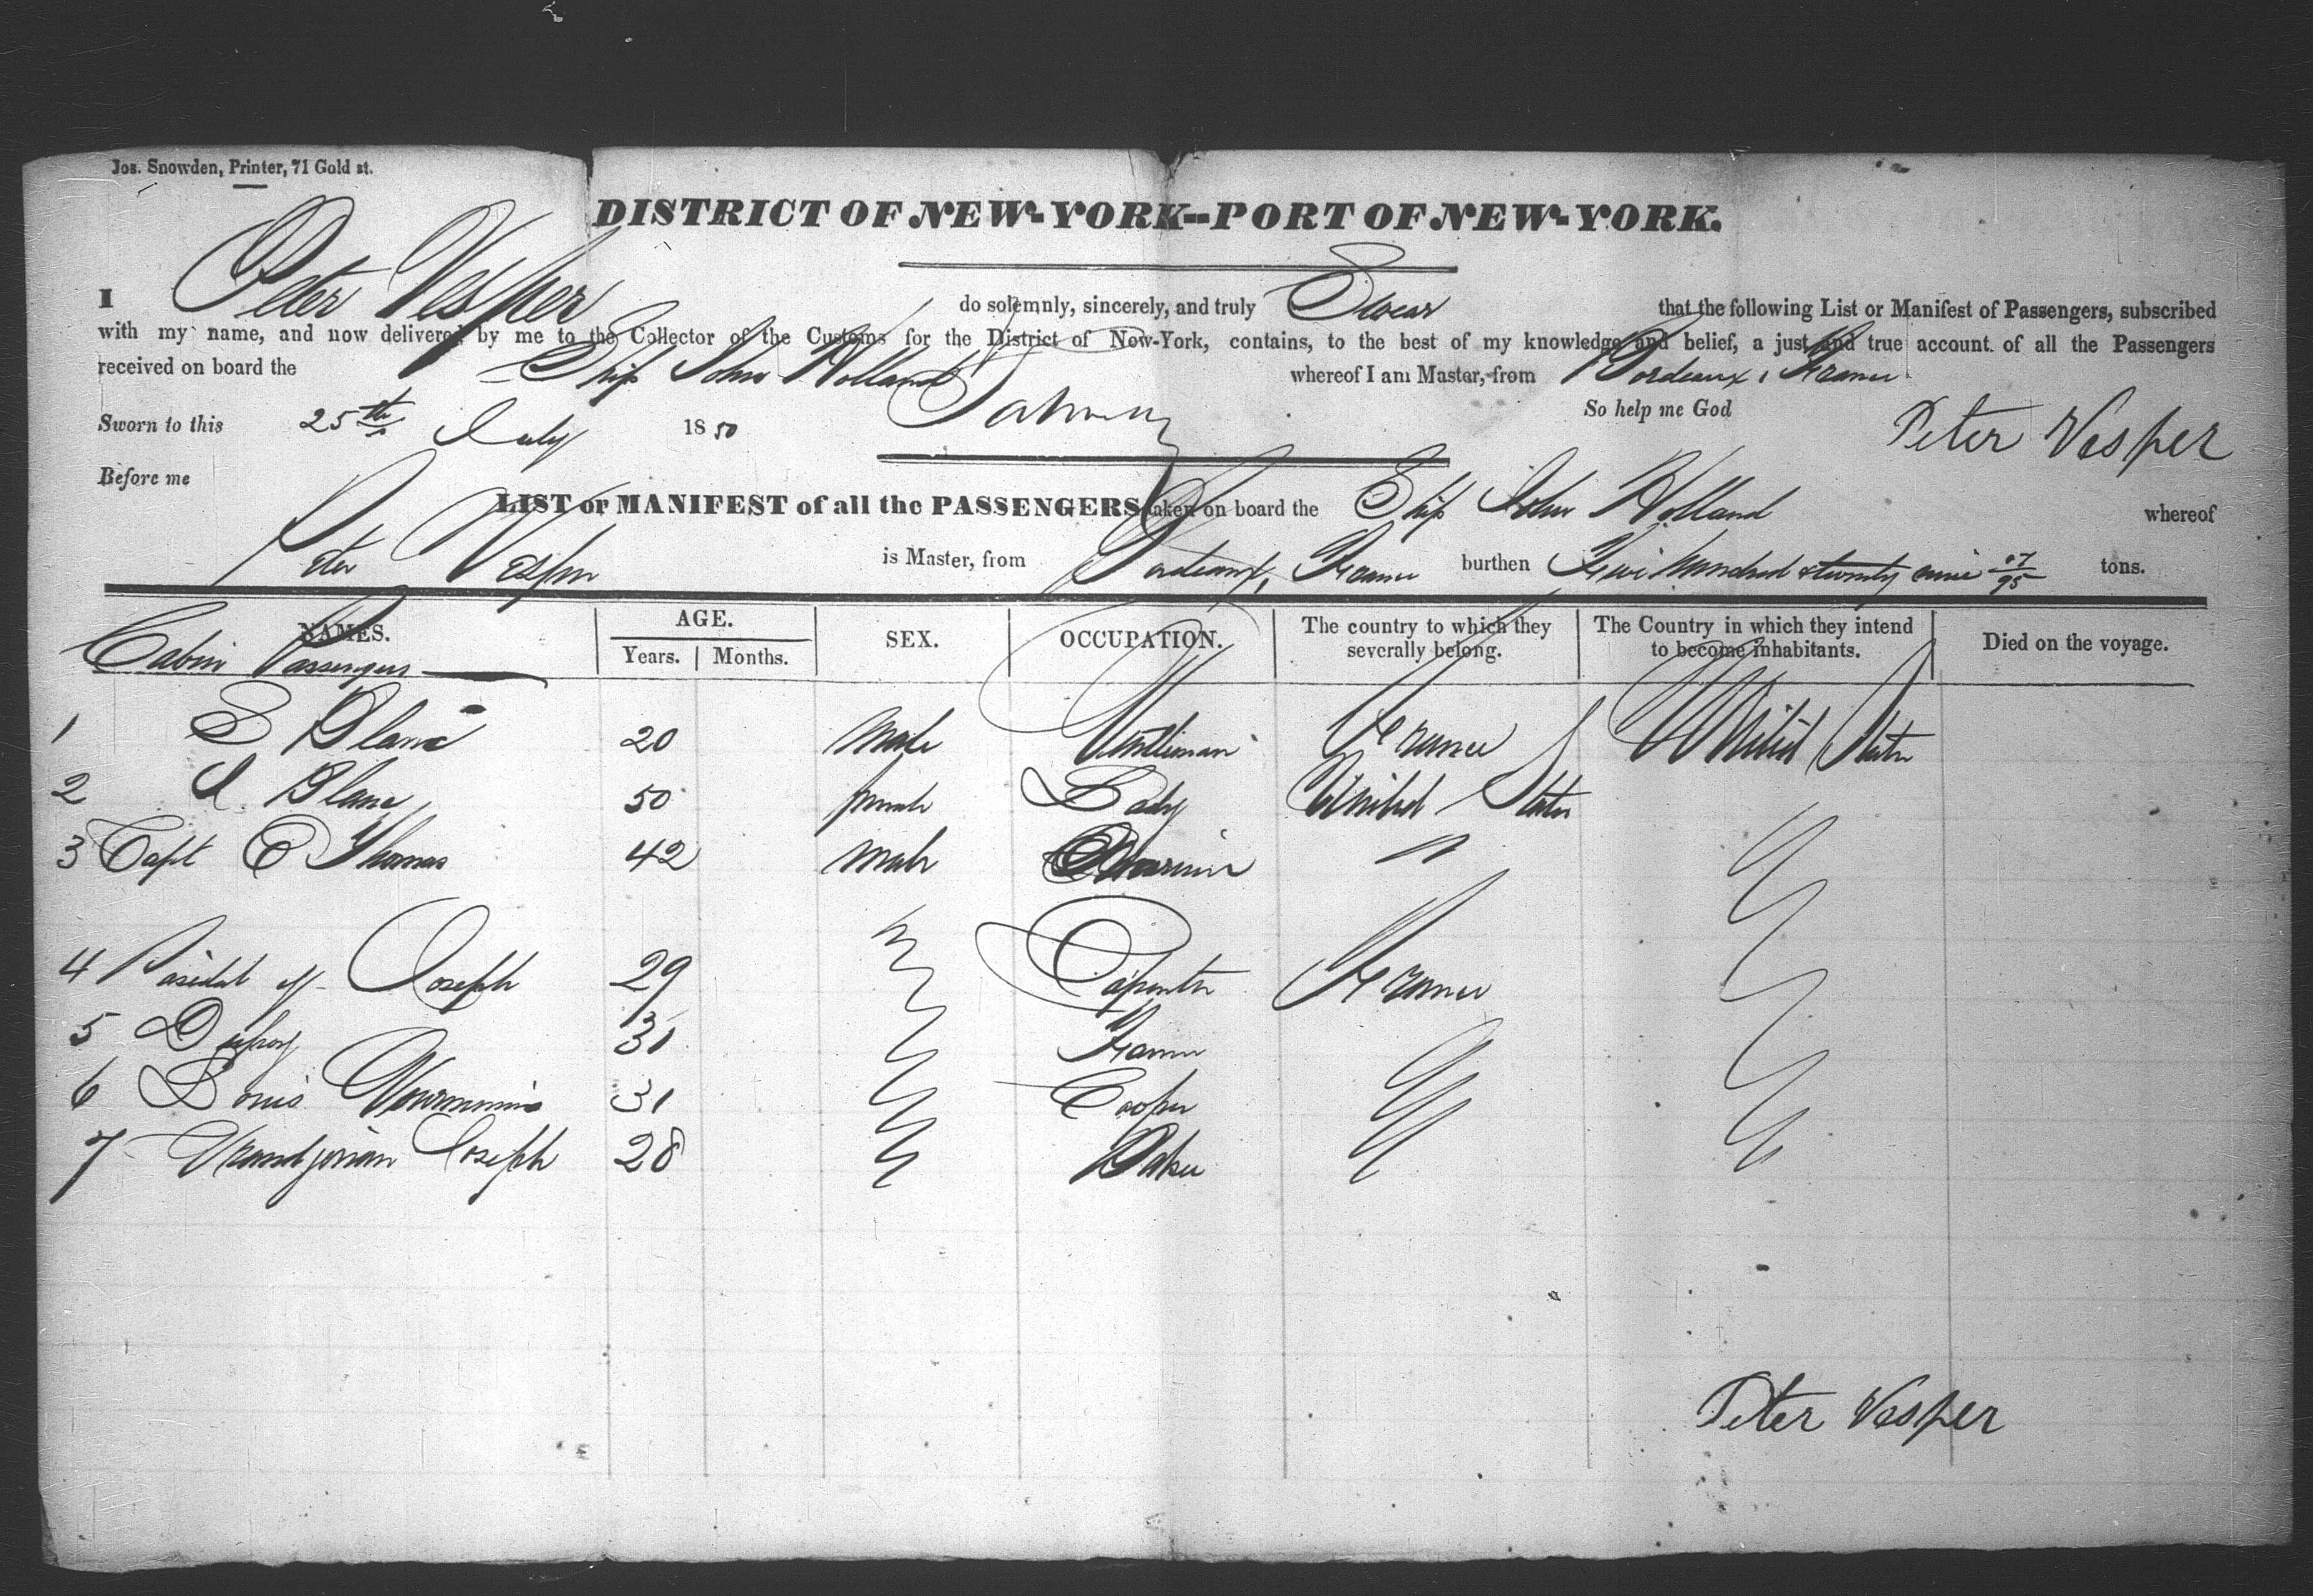 Jos. Snowden, Printer, 71 Gold st.
DISTRICT OF NEW-YORK--PORT OF NEW-YORK.
I Peter Vesper do solemnly, sincerely, and truly Swear that the following List or Manifest of Passengers, subscribed
with my name, and now delivered by me to the Collector of the Customs for the District of New-York, contains, to the best of my knowledge and belief, a just and true account of all the Passengers
received on board the Ship John Holland whereof I am Master, from Bordeaux, France
So help me God
Sworn to this 25th July 1850 Peter Vesper
Before me
LIST or MANIFEST of all the PASSENGERS taken on board the Ship John Holland whereof
Peter Vesper is Master, from Bordeaux, France burthen Five hundred & twenty nine 07/95 tons.
NAMES. AGE. Years. Months. SEX. OCCUPATION. The country to which they severally belong. The Country in which they intend to become inhabitants. Died on the voyage.
Cabin Passengers
1 S Blanc 20 male Gentleman France United States
2 Blanc 50 female Lady United States
3 Capt C Thomas 42 male Mariner "
4 Joseph 29 Carpenter France
5 Dupuy 31
6 Louis 31 Cooper
7 Joseph 28 Baker
Peter Vesper